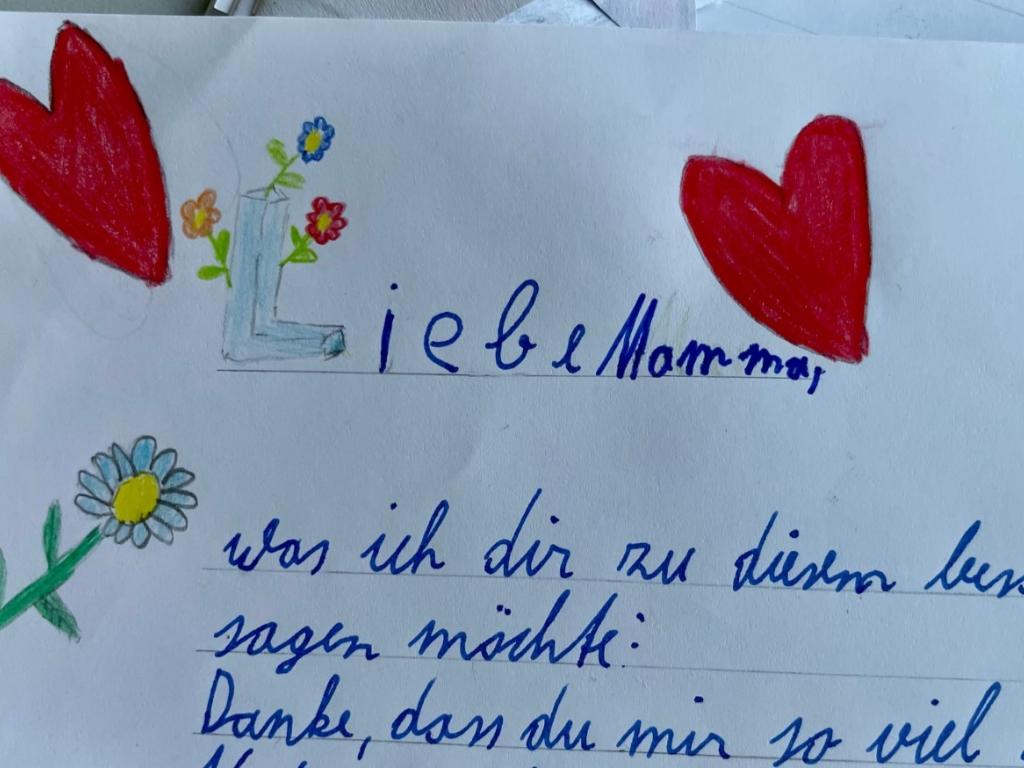 Liebe Mamma,
was ich dir zu diesem
sagen möchte:
Danke, dass du mir so viel